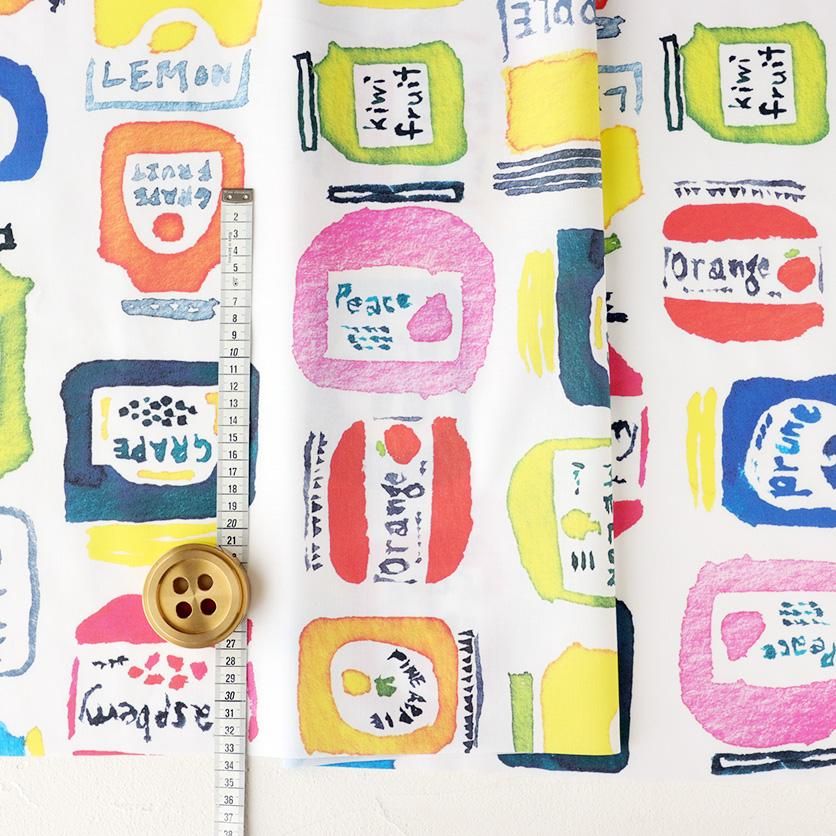 LEMON
kiwi
fruit
kiwi
fruit
GRAPE
FRUIT
2
3
4
5
6
7
8
9
10
11
12
13
14
15
16
17
18
19
20
21
27
28
29
30
31
32
33
34
35
36
37
38
Orange
Peace
GRAPE
prune
Orange
PINEAPP
Peace
aspberry